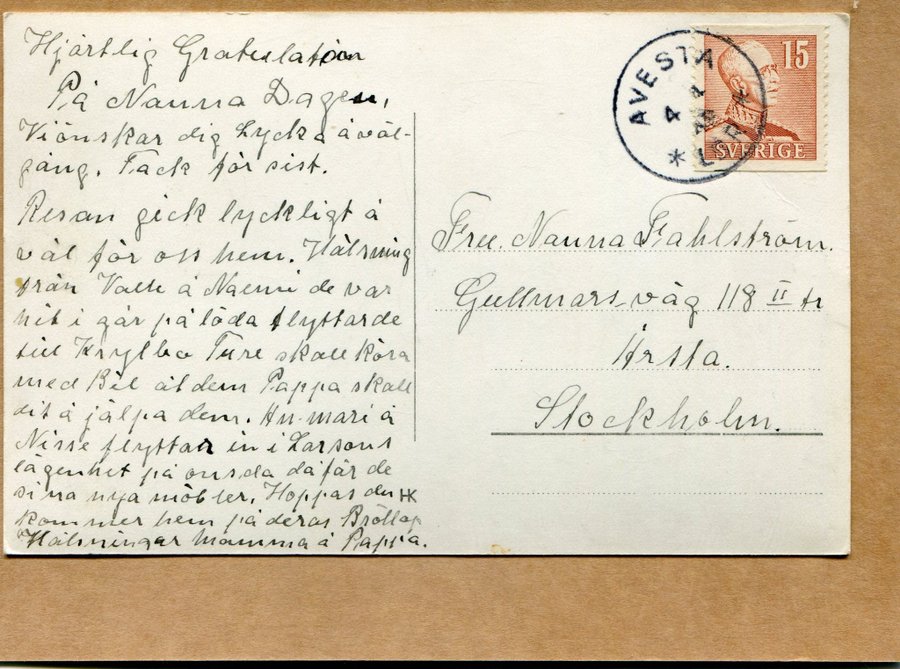 Hjärtlig Gratulation
På Nanna Dagen,
Vi önskar dig Lycka å väl-
gång. Tack för sist.
Resan gick lyckligt å
väl för oss hem. Hälsning
från Valle å Naemi de var
hit i går på löda flyttar de
till Krylbo Ture skall köra
med Bil åt dem Pappa skall
dit å jälpa dem. An-mari å
Nisse flyttar in i Larsons
lägenhet på onsda då får de
sina nya möbler. Hoppas du
kommer hem på deras Bröllop
Hälsningar Mamma å Pappa.
HK
AVESTA
4 4
LBR
15
SVERIGE
Frk. Nanna Fahlström.
Gullmars-väg 118 II tr
Årsta.
Stockholm.